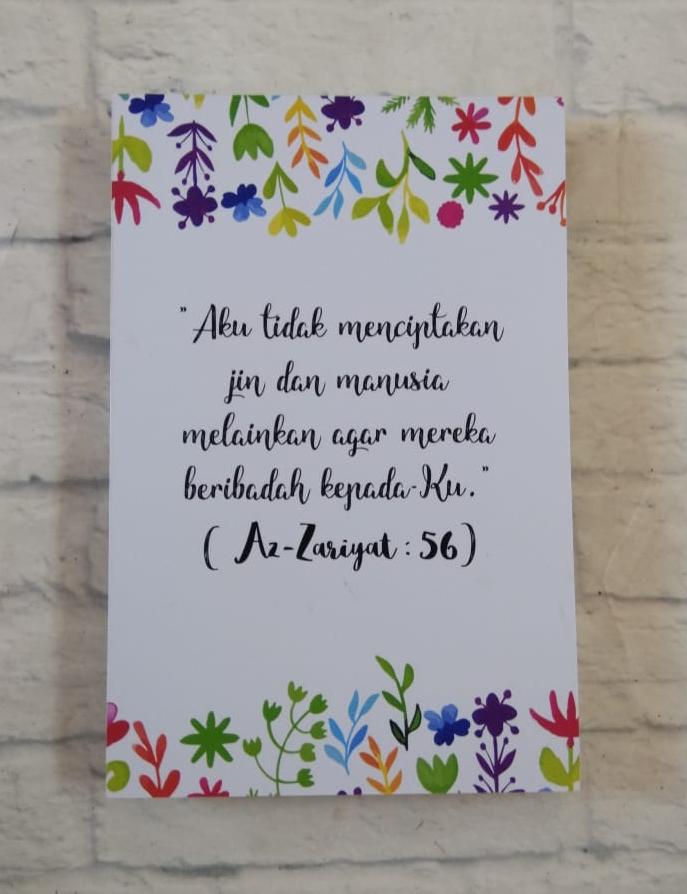 "Aku tidak menciptakan
jin dan manusia
melainkan agar mereka
beribadah kepada-Ku."
( Az-Zariyat : 56)